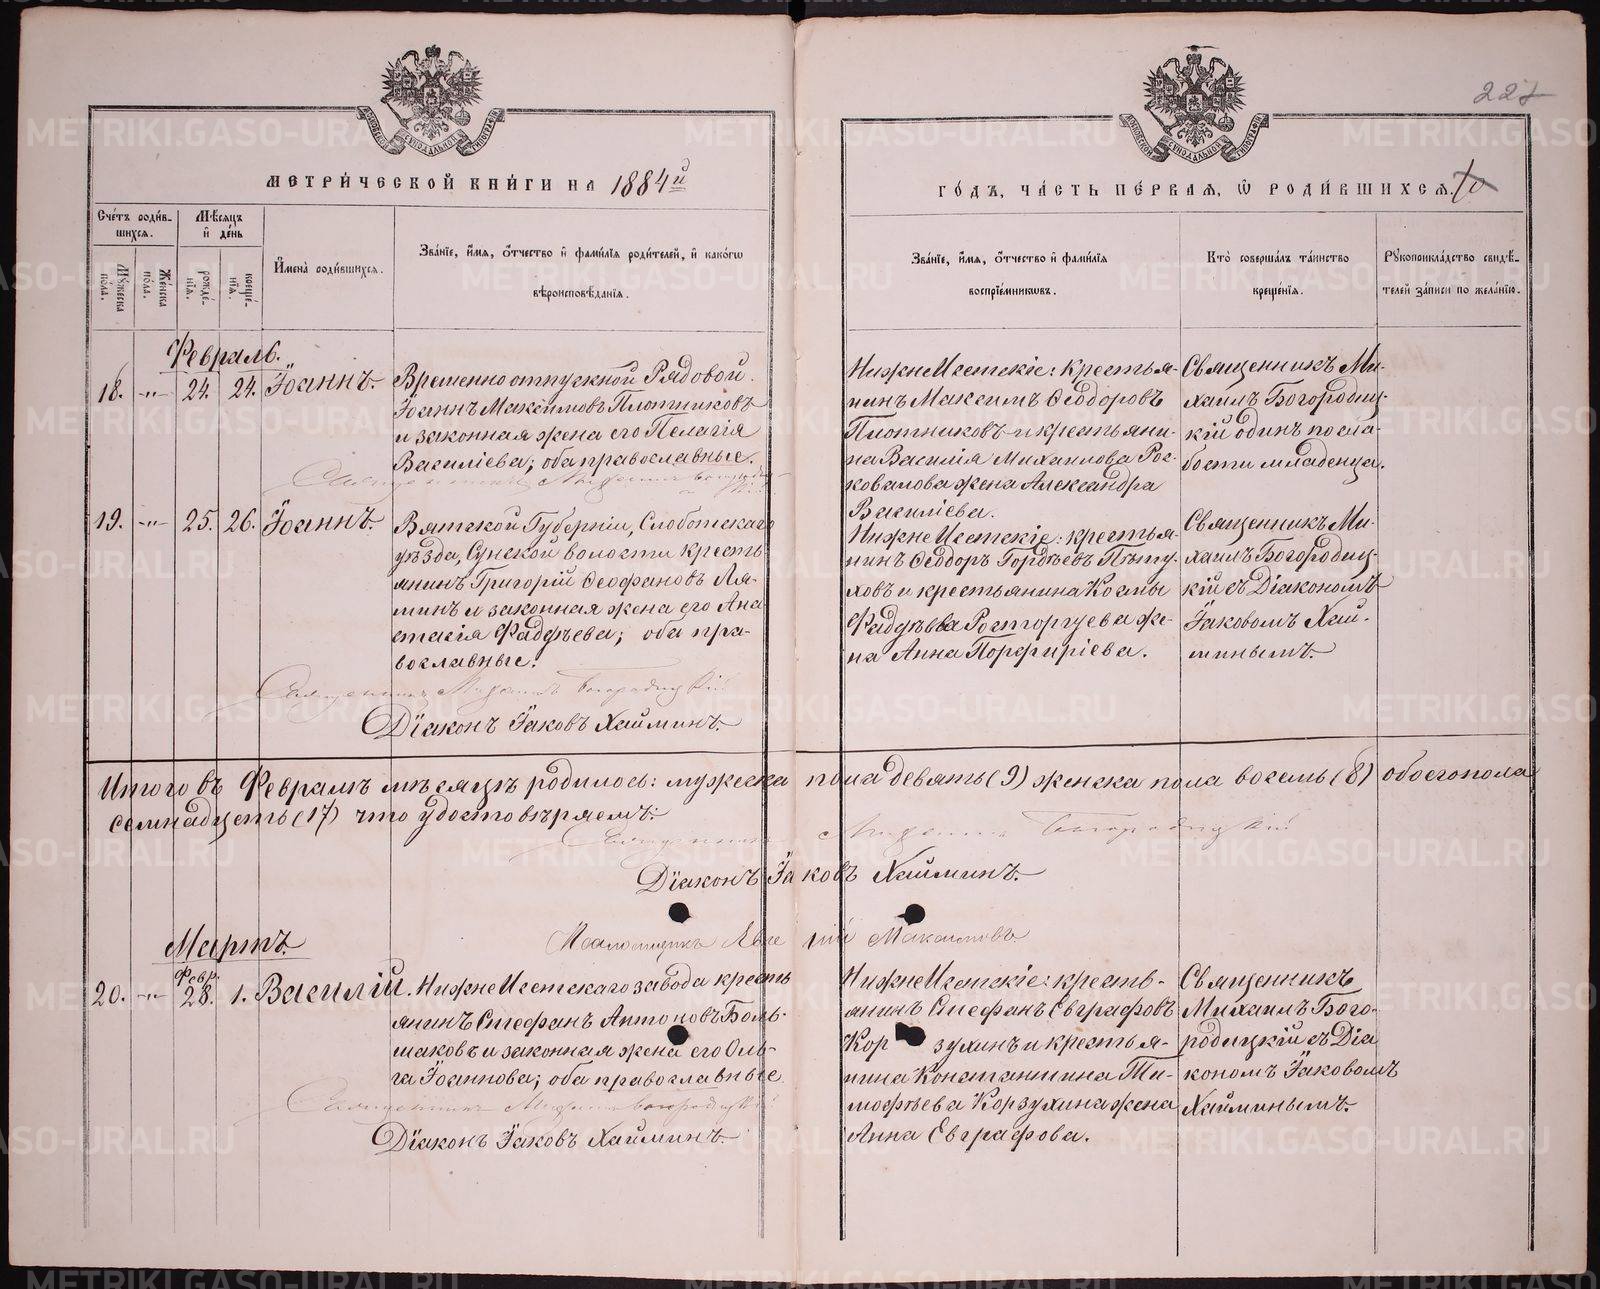 227
МЕТРИЧЕСКОЙ КНИГИ НА 1884й
ГОДЪ, ЧАСТЬ ПЕРВАЯ, Ѡ РОДИВШИХСЯ.
Счетъ родив-
шихся.
Мужеска пола.
Женска пола.
Мѣсяцъ
и день
рожде-
нія.
креще-
нія.
Имена родившихся.
Званіе, имя, отчество и фамилія родителей, и какогѡ
вѣроисповѣданія.
Званіе, имя, отчество и фамилія
воспріемниковъ.
Кто совершалъ таинство
крещенія.
Рукоприкладство свидѣ-
телей записи по желанію.
Февраль.
18. -„- 24. 24. Іоаннъ.
Временноотпускной Рядовой
Іоаннъ Максимовъ Плотниковъ
и законная жена его Пелагія
Василіева; оба православные.
Священникъ Михаилъ Богородицкій
НижнеИсетскіе: крестья-
нинъ Максимъ Ѳеодоровъ
Плотниковъ и крестьяни-
на Василія Михаилова Рос-
ковалова жена Александра
Василіева.
Священникъ Ми-
хаилъ Богородиц-
кій одинъ по сла-
бости младенца.
19. -„- 25. 26. Іоаннъ.
Вятской Губерніи, Слоботскаго
уѣзда, Сунской волости кресть
янинъ Григорій Ѳеофановъ Ля-
минъ и законная жена его Ана
стасія Фаддѣева; оба пра-
вославные.
Священникъ Михаилъ Богородицкій
Діаконъ Іаковъ Хайминъ.
НижнеИсетскіе: крестья-
нинъ Ѳеодоръ Гордѣевъ Пѣту-
ховъ и крестьянина Космы
Фаддѣева Расторгуева же-
на Анна Порфиріева.
Священникъ Ми-
хаилъ Богородиц-
кій съ Діакономъ
Іаковомъ Хай-
минымъ.
Итого въ Февралѣ мѣсяцѣ родилось: мужеска пола девять (9) женска пола восемь (8) обоего пола
семнадцать (17) что удостовѣряемъ:
Священникъ Михаилъ Богородицкій
Діаконъ Іаковъ Хайминъ.
Псаломщикъ Евгеній Максимовъ
Мартъ.
Февр.
20. -„- 28. 1. Василій.
НижнеИсетскаго завода кресть
янинъ Стефанъ Антоновъ Боль-
шаковъ и законная жена его Оль-
га Іоаннова; оба православные
Священникъ Михаилъ Богородицкій
Діаконъ Іаковъ Хайминъ.
НижнеИсетскіе: кресть-
янинъ Стефанъ Евграфовъ
Корзухинъ и крестья-
нина Константина Ти-
мофѣева Корзухина жена
Анна Евграфова.
Священникъ
Михаилъ Бого-
родицкій съ Діа
кономъ Іаковомъ
Хайминымъ.
METRIKI.GASO-URAL.RU